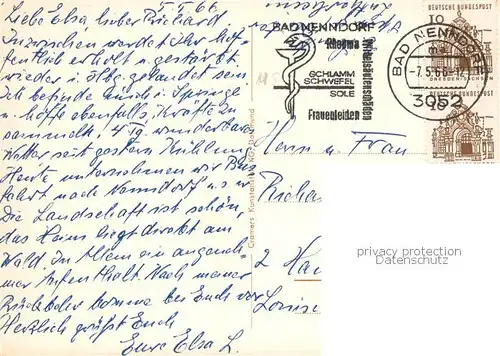 5.5.66
Liebe Elsa, lieber Richard
Inzwischen werdet Ihr hof-
fentlich erholt und gestärkt
wieder in Hbg. gelandet sein.
Ich befinde mich in Springe
u. hoffe ebenfalls, Kräfte zu
sammeln. 4 Tg. wunderbares
Wetter seit gestern Kühlung
Heute unternehmen wir Bus
fahrt nach Nenndorf u.s.w.
Die Landschaft ist schön,
das Heim liegt direkt am
Wald. In Allem ein angeneh-
mer Aufenthalt. Nach meiner
Rückkehr komme bei Euch vor
Herzlich grüßt Euch
Eure Elsa L.
BAD NENNDORF
Rheuma
SCHLAMM
SCHWEFEL
SOLE
Frauenleiden
BAD NENNDORF
-7.5.66-
3052
DEUTSCHE BUNDESPOST
DEUTSCHE BUNDESPOST
Cramers Kunstanstalt KG Dortmund
Herrn u. Frau
Richa
2 Ha
Louise
privacy protection
Datenschutz